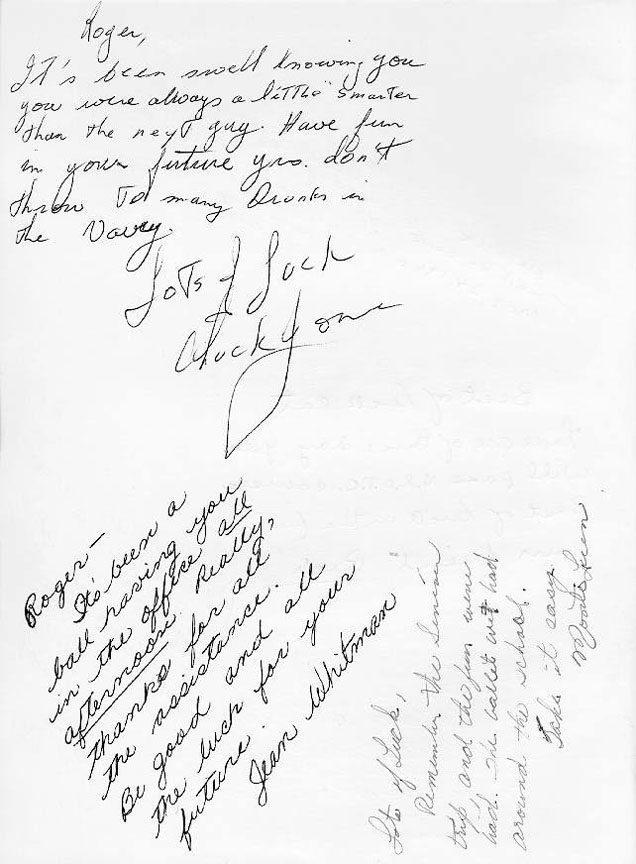 Roger,
It's been swell knowing you
you were always a little "smarter
than the next guy. Have fun
in your future yrs. don't
throw To many Drunks in
the
Lots of Luck
Chuck
Roger-
It's been a
ball having you
in the office all
afternoon. Really,
thanks for all
the assistance.
Be good and all
the luck for your
future.
Jean Whitman
Lots of Luck,
Remember the Senior
trip and the fun we
had. The ballet we had
around the school.
Take it easy